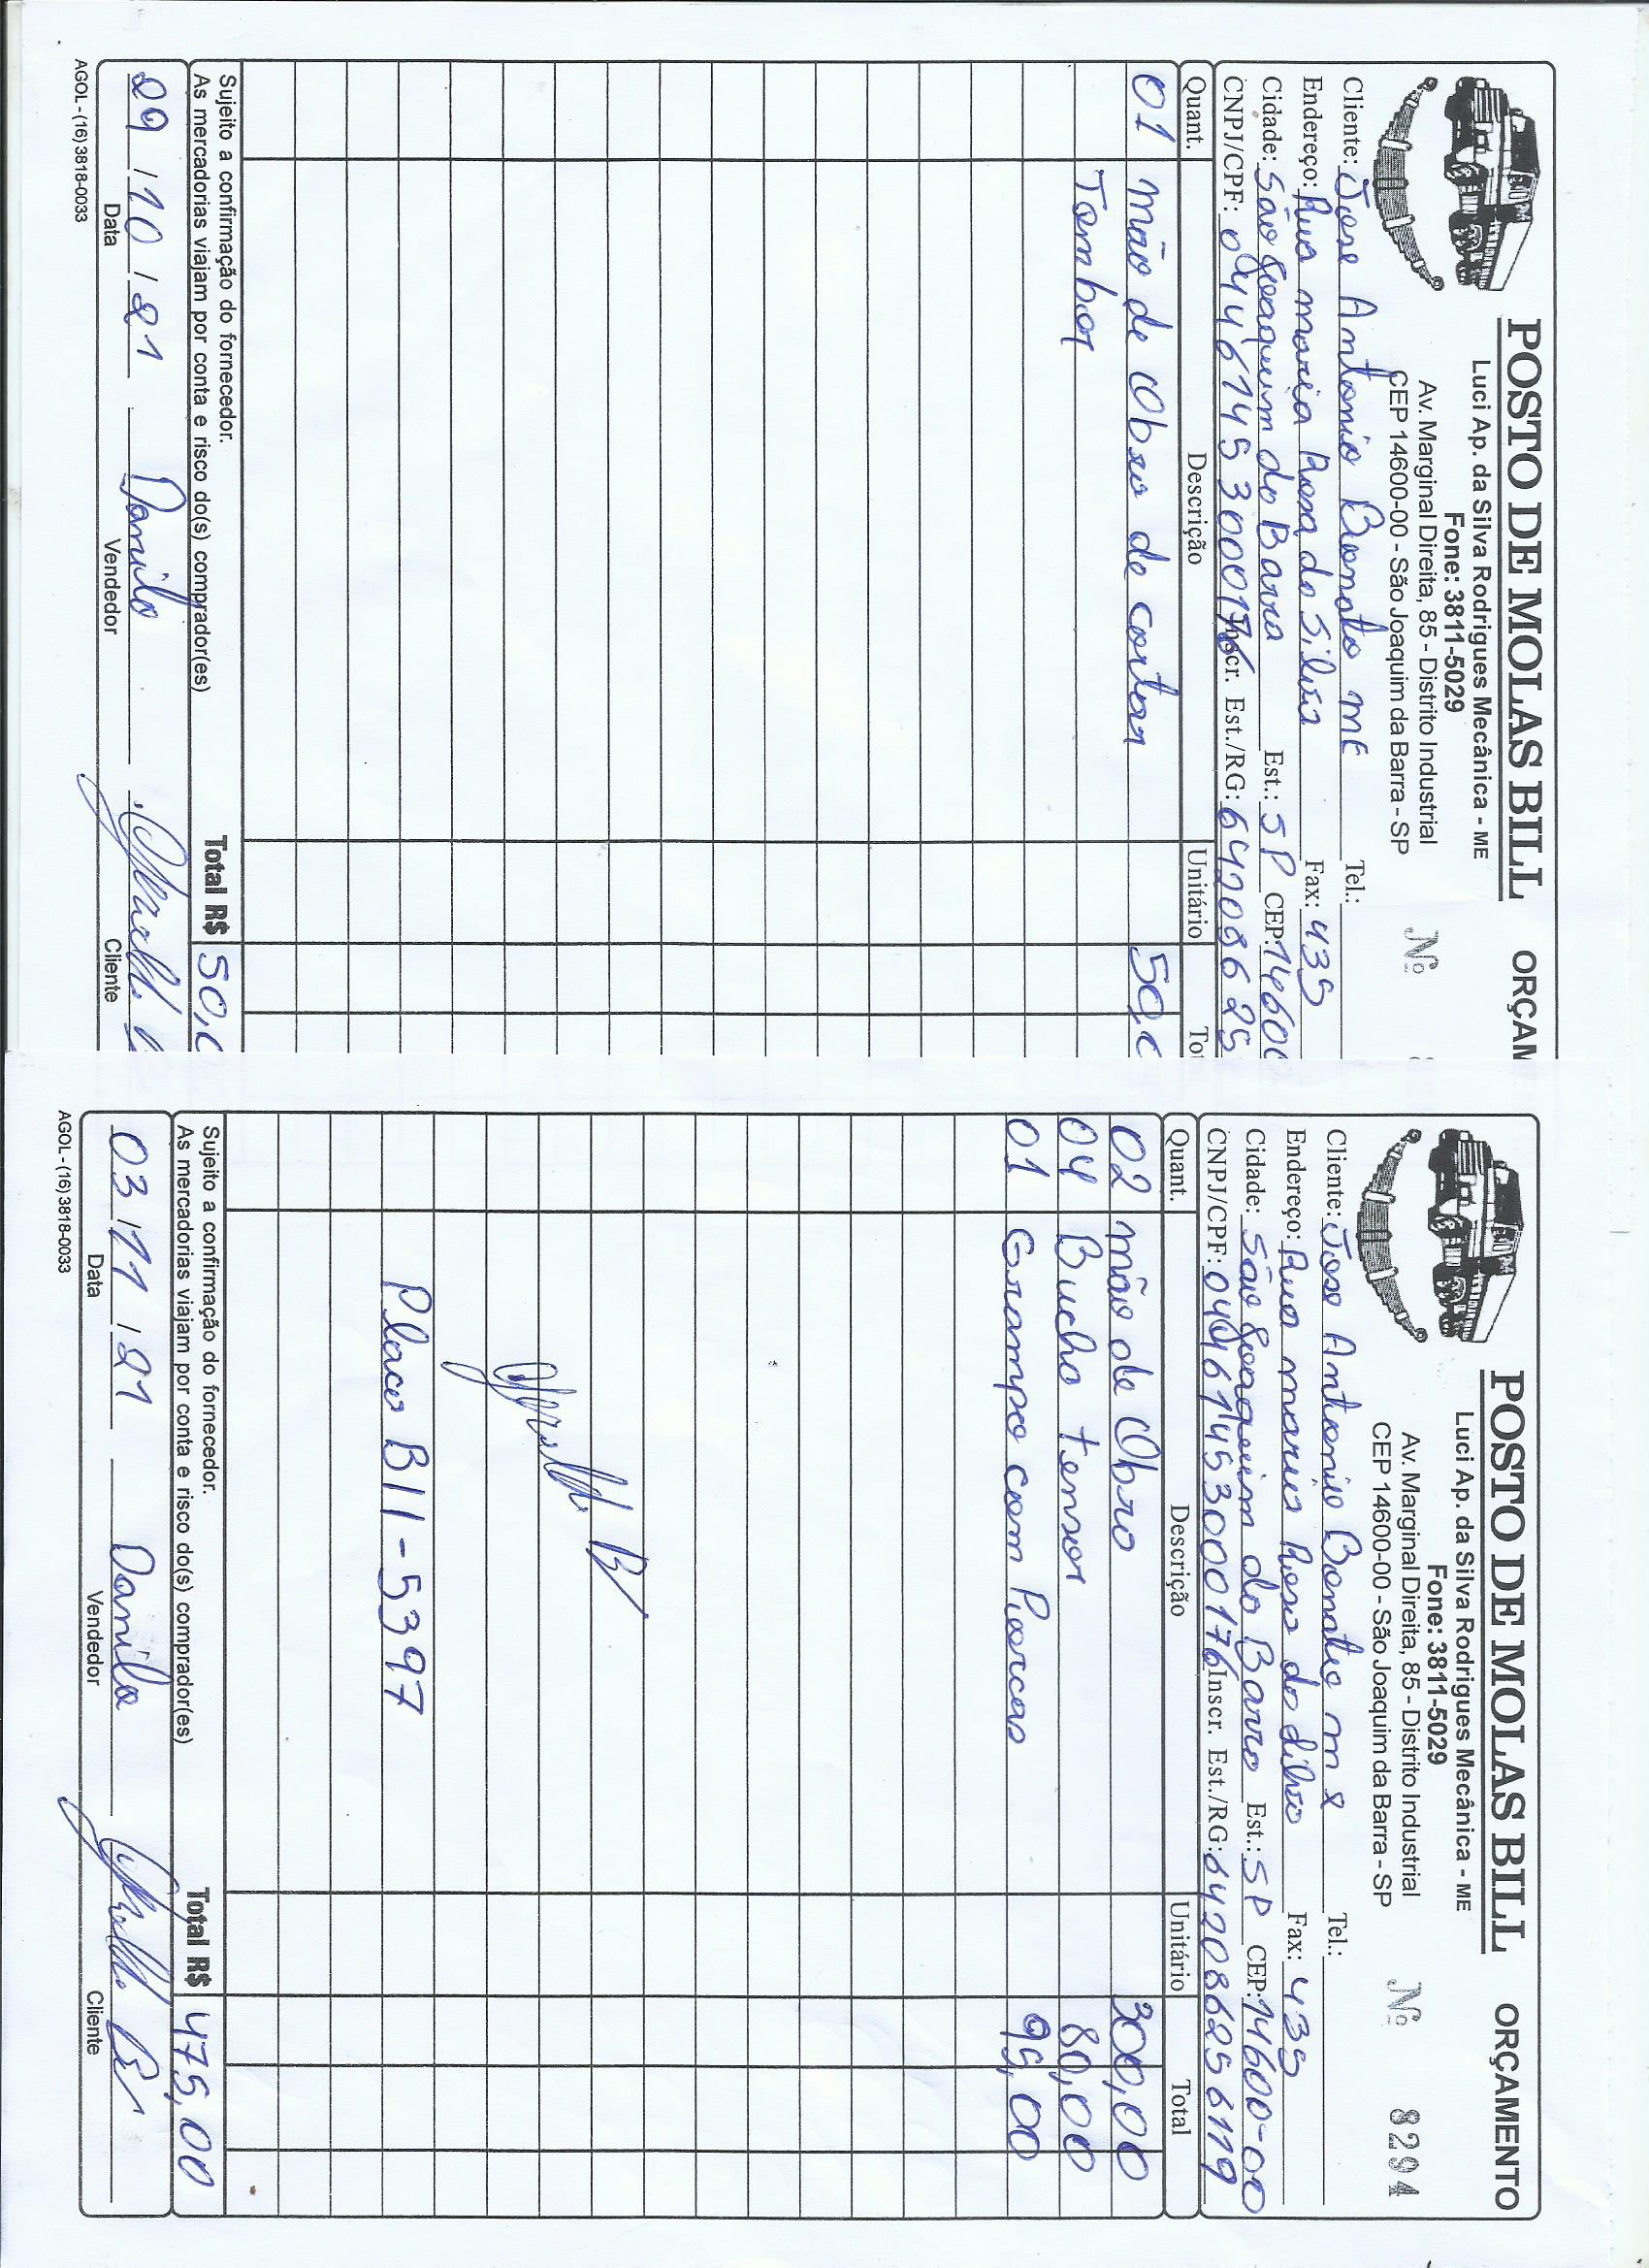 POSTO DE MOLAS BILL ORÇAM
Luci Ap. da Silva Rodrigues Mecânica - ME
Fone: 3811-5029
Av. Marginal Direita, 85 - Distrito Industrial
CEP 14600-00 - São Joaquim da Barra - SP
Nº
Cliente: Jose Antonio Bonato me Tel.:
Endereço: Rua maria Rosa da Silva Fax: 435
Cidade: São Joaquim da Barra Est.: SP CEP: 14600
CNPJ/CPF: 04461453000176 Inscr. Est./RG: 642086625
Quant. Descrição Unitário To
01 mão de Obra de cortar 50,0
Tambor
Sujeito a confirmação do fornecedor.
As mercadorias viajam por conta e risco do(s) comprador(es)
Total R$ 50,0
29/10/21 Danilo
Data Vendedor Cliente
AGOL - (16) 3818-0033
POSTO DE MOLAS BILL ORÇAMENTO
Luci Ap. da Silva Rodrigues Mecânica - ME
Fone: 3811-5029
Av. Marginal Direita, 85 - Distrito Industrial
CEP 14600-00 - São Joaquim da Barra - SP
Nº 8294
Cliente: Jose Antonio Bonato me Tel.:
Endereço: Rua maria Rosa da silva Fax: 435
Cidade: São Joaquim da Barra Est.: SP CEP: 14600-00
CNPJ/CPF: 04461453000176 Inscr. Est./RG: 642086256119
Quant. Descrição Unitário Total
02 mão de Obra 300,00
04 Bucha tensor 80,00
01 Grampo com Porcas 95,00
Placa BII-5397
Sujeito a confirmação do fornecedor.
As mercadorias viajam por conta e risco do(s) comprador(es)
Total R$ 475,00
03/11/21 Danilo
Data Vendedor Cliente
AGOL - (16) 3818-0033